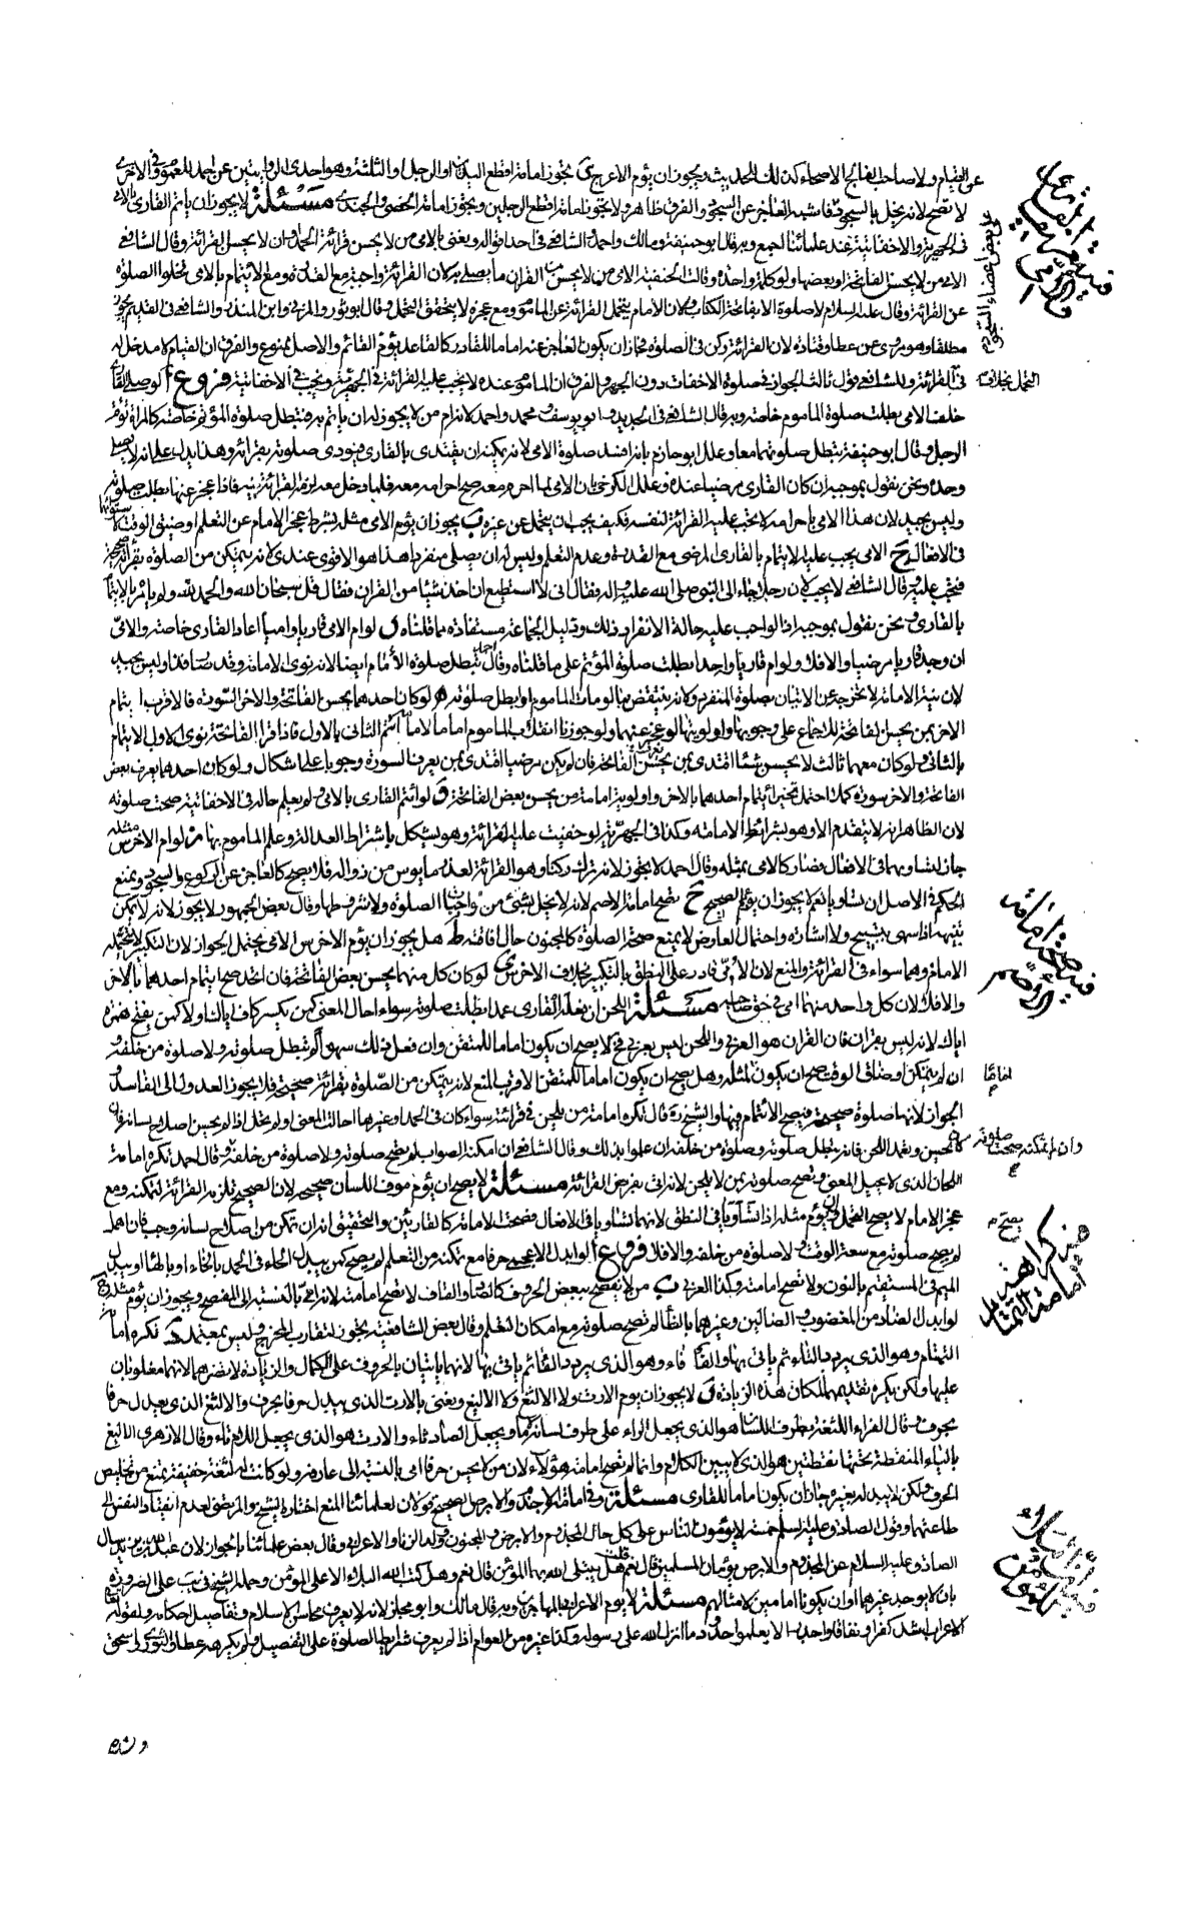 عن القيام ولا صاحب الفالج الاصحاء كذلك للحديث ويجوز ان يؤم الاعرج ى يجوز امامة اقطع اليدين او الرجل او الثلثة وهو احدى الروايتين عن احمد للعموم وفى الاخرى
لا تصح لانه يخل بالسجود فاشبه العاجز عن السجود والفرق ظاهر ولا يجوز امامة اقطع الرجلين ويجوز امامة الخصى والجندى مسئلة لا يجوز ان يأتم القارى بالامى
فى الجهرية والاخفاتية عند علمائنا اجمع وبه قال ابو حنيفة ومالك واحمد والشافعى فى احد اقواله ونعنى بالامى من لا يحسن قرائة الحمد ان لا يحسن القرائة وقال الشافعى
الامى من لا يحسن الفاتحة او بعضها ولو كلمة واحدة وقالت الحنفية الامى من لا يحسن من القران ما يصلى به لان القرائة واجبة مع القدرة ومع الايتمام بالامى تخلوا الصلوة
عن القرائة وقال عليه السلام لا صلوة الا بفاتحة الكتاب ولان الامام يتحمل القرائة عن الماموم ومع عجزه لا يتحقق التحمل وقال ابو ثور والمزنى وابن المنذر والشافعى فى القديم يجوز
مطلقا وهو مروى عن عطا وقتادة لان القرائة ركن فى الصلوة فجاز ان يكون العاجز عنه اماما للقادر كالقاعد يؤم القائم والاصل ممنوع والفرق ان القيام لا مدخل له
فى القرائة وللشافعى قول ثالث الجواز فى صلوة الاخفات دون الجهر والفرق ان الماموم عنده لا يجب عليه القرائة فى الجهرية ويجب فى الاخفاتية فروع ا لو صلى القارى
خلف الامى بطلت صلوة الماموم خاصة وبه قال الشافعى فى الجديد وابو يوسف محمد واحمد لانه ام من لا يجوز له ان يأتم به فتبطل صلوة المؤتم خاصة كالمراة تؤم
الرجل وقال ابو حنيفة تبطل صلوتهما معا وعلل ابو حازم بانه افسد صلوة الامى لانه يمكنه ان يقتدى بالقارى فيؤدى صلوته بقرائة وهذا يدل على انه لا يصلى
وحده ونحن نقول بموجبه ان كان القارى مرضيا عنده وعلل الكرخى بان الامى لما احرم معه صح احرامه معه فلما دخل معه لزمه القرائة عنه فاذا عجز عنها بطلت صلوته
وليس بجيد لان هذا الامى باحرامه لا يجب عليه القرائة لنفسه فكيف يجب ان يتحمل عن غيره ب يجوز ان يؤم الامى مثله بشرط عجز الامام عن التعلم او ضيق الوقت لاستوائهما
فى الافعال ج الامى يجب عليه الايتمام بالقارى المرضى مع القدرة وعدم التعلم وليس له ان يصلى منفردا هذا هو الاقوى عندى لانه يتمكن من الصلوة بقرائة صحيحة
فيجب عليه وقال الشافعى لا يجب لان رجلا جاء الى النبى صلى الله عليه واله فقال انى لا استطيع ان اخذ شيئا من القران فقال قل سبحان الله والحمد لله ولم يامره بالايتمام
بالقارى ونحن نقول بموجبه اذ الواجب عليه حالة الانفراد ذلك ودليل الجماعة مستفاد مما قلناه د لو ام الامى قاريا واميا اعاد القارى خاصة والامى
ان وجد قاريا مرضيا والا فلا ولو ام قاريا واحدا بطلت صلوة المؤتم على ما قلناه وقال احمد تبطل صلوة الامام ايضا لانه نوى الامامة وقد فسدت وليس بجيد
لان نية الامامة لا تخرجه عن الاتيان بصلوة المنفرد ولانه ينتقض بما لو مات الماموم او بطل صلوته ه لو كان احدهما يحسن الفاتحة والاخر السورة فالاقرب ايتمام
الاخر بمن يحسن الفاتحة للاجماع على وجوبها واولويتها لو عجز عنهما ولو جوزنا انقلاب الماموم اماما لامامه ائتم الثانى بالاول فاذا قرا الفاتحة نوى الاول الايتمام
بالثانى ولو كان معهما ثالث لا يحسن شيئا اقتدى بمن يحسن الفاتحة فان لم يكن مرضيا اقتدى بمن يعرف السورة وجوبا على اشكال ولو كان احدهما يعرف بعض
الفاتحة والاخر سورة كملا احتمل تخير ايتمام احدهما بالاخر واولوية امامة من يحسن بعض الفاتحة و لو ائتم القارى بالامى ولم يعلم حاله فى الاخفاتية صحت صلوته
لان الظاهر انه لا يتقدم الا وهو بشرائط الامامة وكذا فى الجهرية لو خفيت عليه القرائة وهو يشكل باشتراط العدالة وعلم الماموم بها ز لو ام الاخرس مثله
جاز لتساويهما فى الافعال فصار كالامى بمثله وقال احمد لا يجوز لانه ترك ركنا وهو القرائة لعذر مايوس من زواله فلا يصح كالعاجز عن الركوع والسجود ويمنع
الحكم فى الاصل ان تساويا نعم لا يجوز ان يؤم الصحيح ح تصح امامة الاصم لانه لا يخل بشئ من واجبات الصلوة ولا شرطها وقال بعض الجمهور لا يجوز لانه لا يمكن
تنبيهه اذا سهى بتسبيح ولا اشارة واحتمال العارض لا يمنع صحة الصلوة كالمجنون حال افاقته ط هل يجوز ان يؤم الاخرس الامى يحتمل الجواز لان التكبير لا يتحمله
الامام وهما سواء فى القرائة والمنع لان الامى قادر على النطق بالتكبير بخلاف الاخرس ى لو كان كل منهما يحسن بعض الفاتحة فان اتحد صح ايتمام احدهما بالاخر
والا فلا لان كل واحد منهما امى فى حق صاحبه مسئلة اللحن ان تعمد القارى عمدا بطلت صلوته سواء احال المعنى كمن يكسر كاف اياك او لا كمن يفتح همزة
اياك لانه ليس بقران فان القران هو العربى واللحن ليس بعربى فح لا يصح ان يكون اماما للمتقن وان فعل ذلك سهوا لم تبطل صلوته ولا صلوة من خلفه و
ان لم يتمكن او ضاق الوقت صح ان يكون لمثله وهل يصح ان يكون اماما للمتقن الاقرب المنع لانه يتمكن من الصلوة بقرائة صحيحة فلا يجوز العدول الى الفاسدة و
الجواز لانها صلوة صحيحة فيصح الائتمام فيها والشيخ ره قال تكره امامة من يلحن فى قرائته سواء كان فى الحمد او غيرها احالت المعنى او لم يخل اذا لم يحسن اصلاح لسانه فان
كان يحسن ويتعمد اللحن فانه تبطل صلوته وصلوة من خلفه ان علموا بذلك وقال الشافعى ان امكنه الصواب لم يصح صلوته ولا صلوة من خلفه وقال احمد تكره امامة
اللحان الذى لا يحيل المعنى وتصح صلوته بمن لا يلحن لانه اتى بفرض القرائة مسئلة لا يصح ان يؤم مؤف اللسان صحيحه لان الصحيح تلزمه القرائة لتمكنه ومع
عجز الامام لا يصح التحمل وان يؤم مثله اذا تساويا فى النطق لانهما تساويا فى الافعال فصحت الامامة كالقاريين والتحقيق انه ان تمكن من اصلاح لسانه وجب فان اهمل
لم يصح صلوته مع سعة الوقت ولا صلوة من خلفه والا فلا فروع ا لو ابدل الاعجمى حرفا مع تمكنه من التعلم لم يصح كمن يبدل الحاء فى الحمد بالخاء او بالهاء او يبدل
الميم فى المستقيم بالنون ولا تصح امامته وكذا العربى ب من لا يفصح ببعض الحروف كالصاد والقاف لا تصح امامته لانه امى بالنسبة الى المفصح ويجوز ان يؤم مثله ج
لو ابدل الضاد من المغضوب والضالين وغيرهما بالظا لم تصح صلوته مع امكان التعلم وقال بعض الشافعية يجوز لتقارب المخرج وليس بمعتمد د تكره امامة
التمتام وهو الذى يردد التاء ثم ياتى بها والفأفاء وهو الذى يردد الفا ثم ياتى بها لانهما ياتيان بالحروف على الكمال والزيادة لا تضرهما لانهما مغلوبان
عليها ولكن يكره تقديمهما لمكان هذه الزيادة ه لا يجوز ان يؤم الارت ولا الالثغ ولا الاليغ ونعنى بالارت الذى يبدل حرفا بحرف والالثغ الذى يعدل حرفا
بحرف وقال الفراء اللثغة بطرف اللسان هو الذى يجعل الراء على طرف لسانه لاما ويجعل الصاد ثاء والارت هو الذى يجعل اللام تاء وقال الازهرى الاليغ
بالياء المنقطة تحتها نقطتين هو الذى لا يبين الكلام وانما لم تصح امامة هؤلاء لان من لا يحسن حرفا امى بالنسبة الى عارفه ولو كانت له لثغة خفيفة يمنع من تخليص
الحرف ولكن لا يبدله بغيره جاز ان يكون اماما للقارى مسئلة وفى امامة الاجذم والابرص الصحيح قولان لعلمائنا المنع اختاره الشيخ والمرتضى لعدم انقياد النفس الى
طاعتهما وقول الصادق عليه السلام خمسة لا يؤمون الناس على كل حال المجذوم والابرص والمجنون وولد الزنا والاعرابى وقال بعض علمائنا بالجواز لان عبد الله بن يزيد سال
الصادق عليه السلام عن المجذوم والابرص يؤمان المسلمين قال نعم قلت هل يبتلى الله بهما المؤمن قال نعم وهل كتب الله البلاء الا على المؤمن وحمله الشيخ فى يب على الضرورة
بان لا يوجد غيرهما او ان يكونا امامين لامثالهم مسئلة لا يؤم الاعرابى بالمهاجرين وبه قال مالك وابو مجلز لانه لا يعرف محاسن الاسلام وتفاصيل احكامه ولقوله تعالى
الاعراب اشد كفرا ونفاقا واجدر الا يعلموا حدود ما انزل الله على رسوله وكذا غيره من العوام اذا لم يعرف شرايط الصلوة على التفصيل ولم يكرهه عطا والثورى واسحق
على بعض اعضاء السجود
التحمل بخلاف
فى صحة امامة الاصم
امامة التمتام